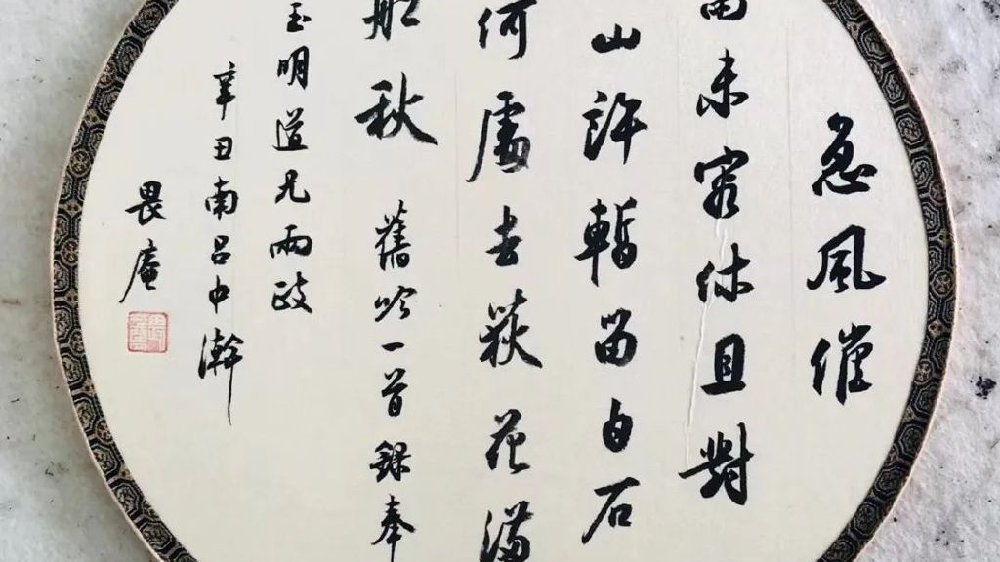 急風催
雨未容休且對
山許暫留白石
何處去荻花滿
船秋 舊吟一首錄奉
玉明道兄兩政
辛丑南呂中澣
畏庵